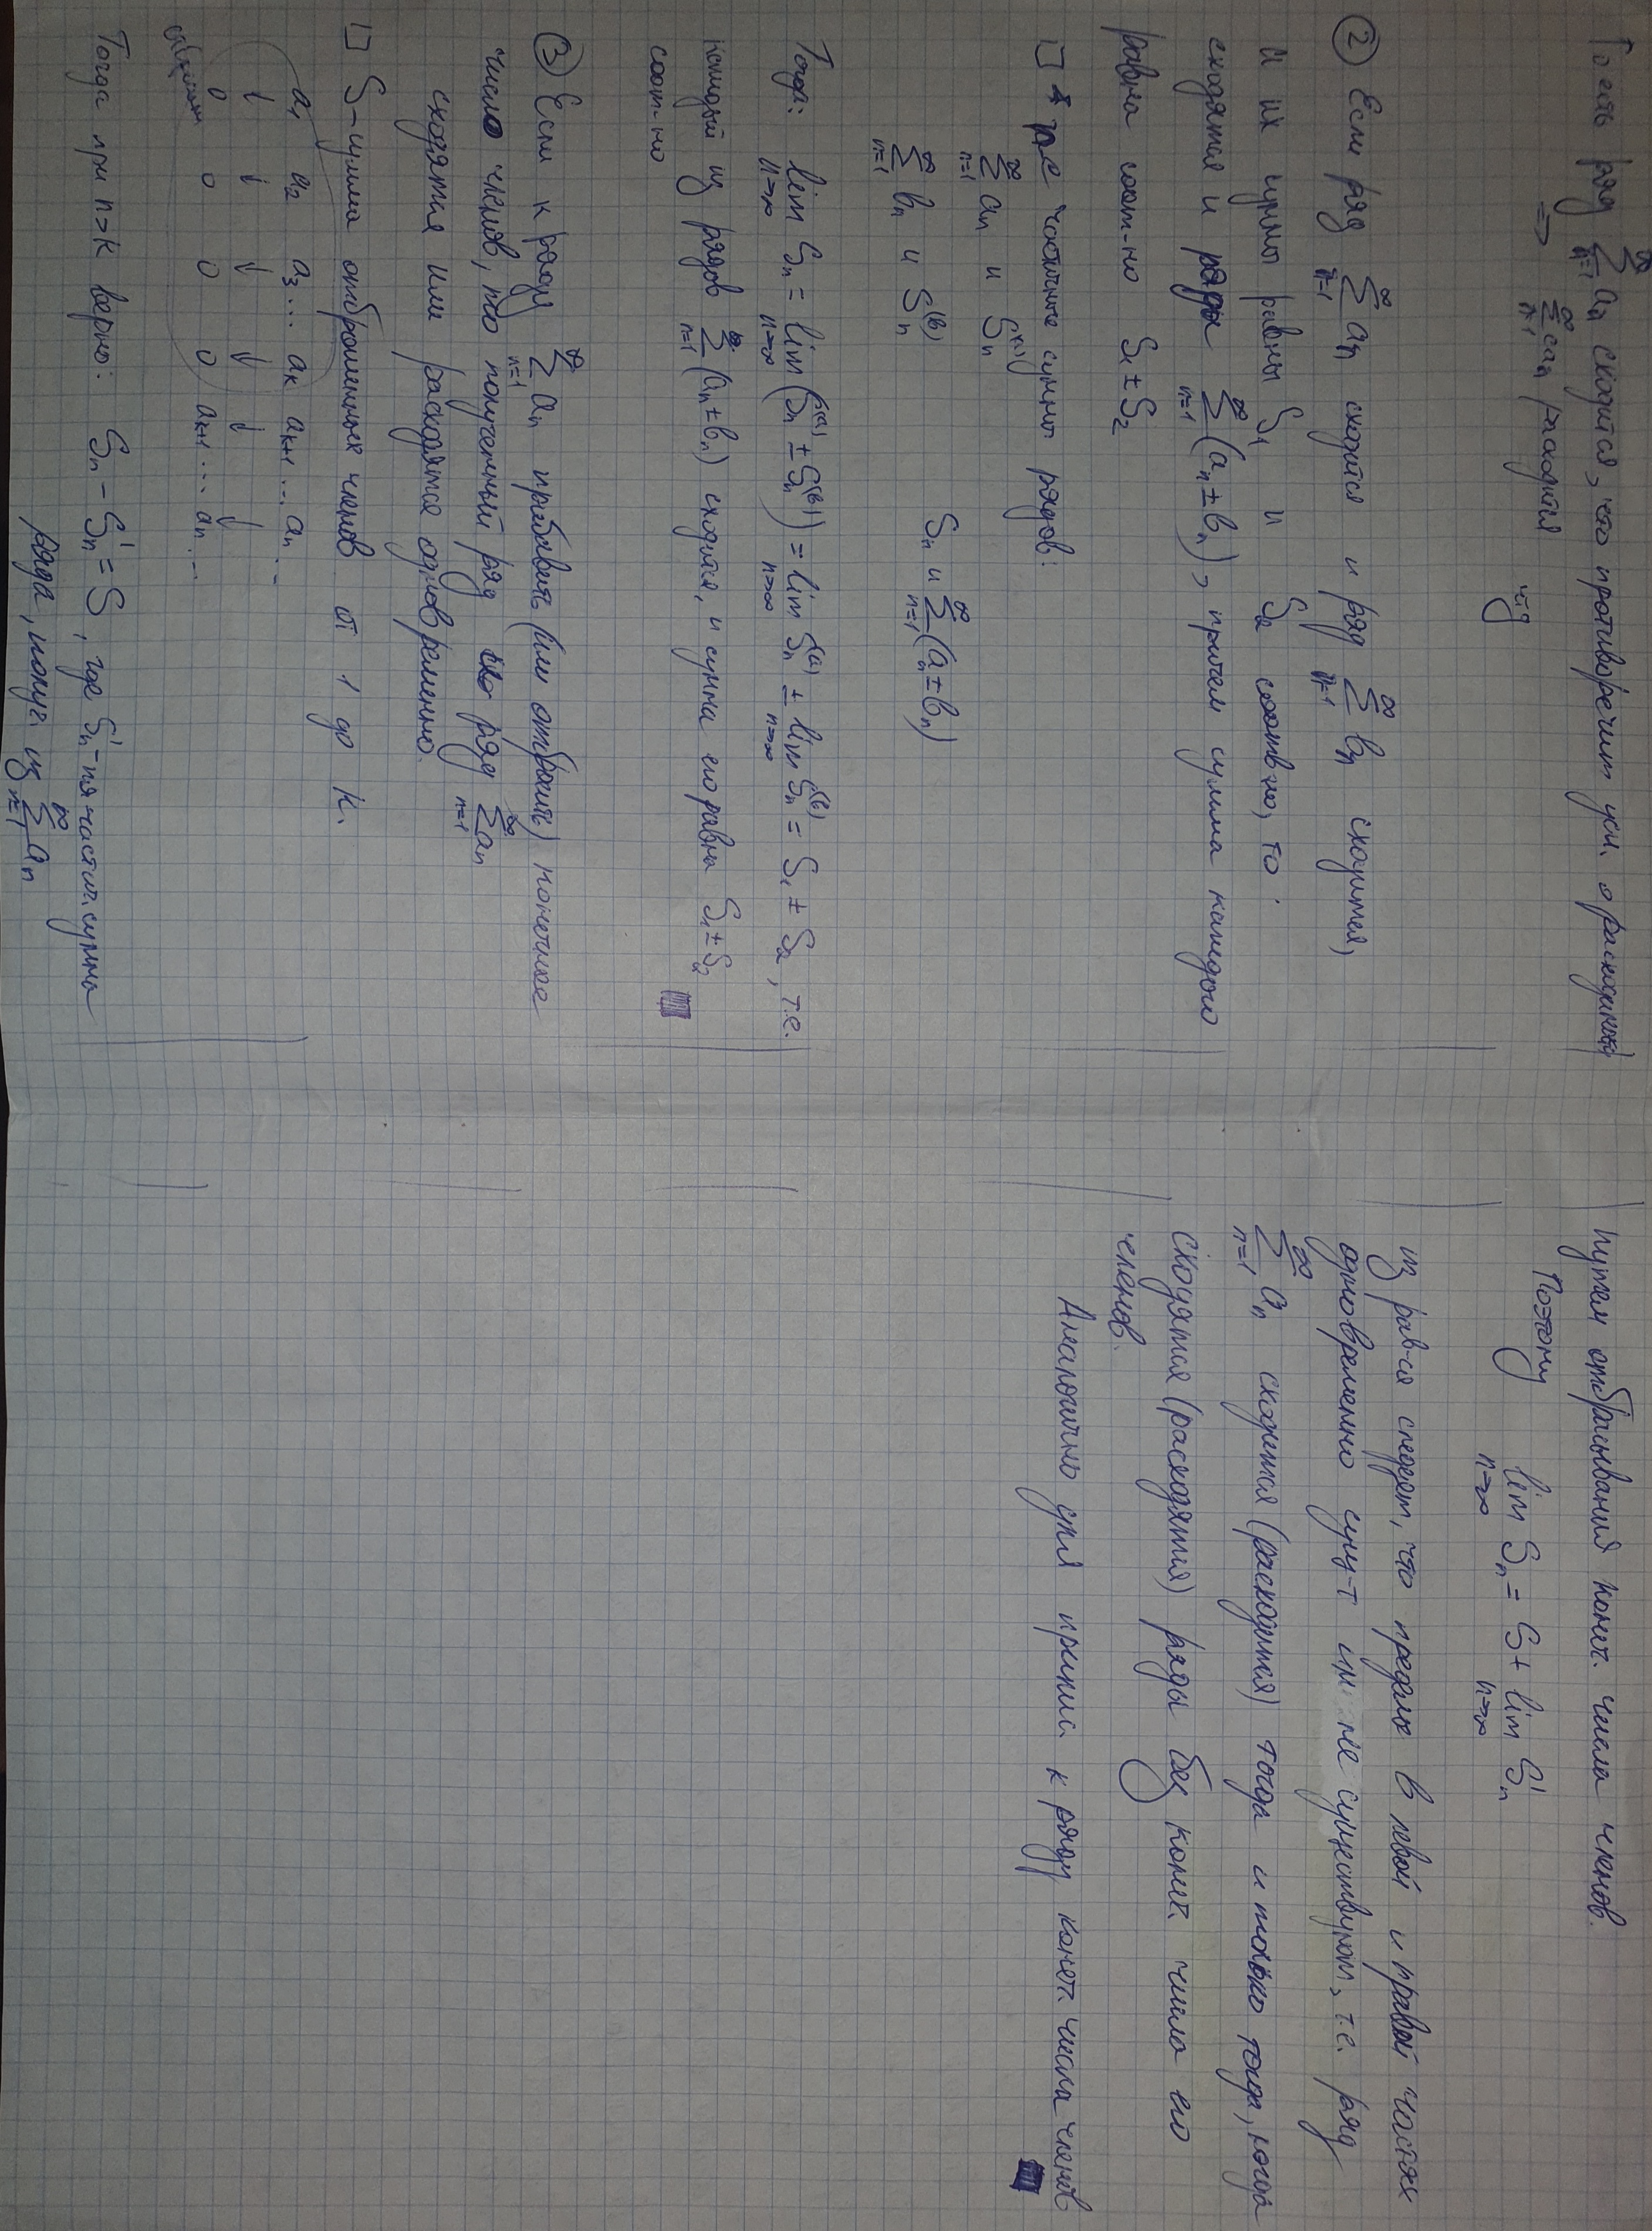 То есть ряд ∞ Σ n=1 aₙ сходится, что противоречит усл. о расходимости
⇒ ∞ Σ n=1 caₙ расходится чтд
② Если ряд ∞ Σ n=1 aₙ сходится и ряд ∞ Σ n=1 bₙ сходится,
и их суммы равны S₁ и S₂ соотв-но, то
сходятся и ряды ∞ Σ n=1 (aₙ ± bₙ), причем сумма каждого
равна соот-но S₁ ± S₂
частичные суммы рядов:
∞ Σ n=1 aₙ и Sₙ⁽ᵃ⁾
∞ Σ n=1 bₙ и Sₙ⁽ᵇ⁾ Sₙ и ∞ Σ n=1 (aₙ ± bₙ)
Тогда: lim n→∞ Sₙ = lim n→∞ (Sₙ⁽ᵃ⁾ ± Sₙ⁽ᵇ⁾) = lim n→∞ Sₙ⁽ᵃ⁾ ± lim n→∞ Sₙ⁽ᵇ⁾ = S₁ ± S₂, т.е.
каждый из рядов ∞ Σ n=1 (aₙ ± bₙ) сходится, и сумма его равна S₁ ± S₂
соот-но
③ Если к ряду ∞ Σ n=1 aₙ прибавить (или отбросить) конечное
число членов, то полученный ряд и ряд ∞ Σ n=1 aₙ
сходятся или расходятся одновременно.
□ S-сумма отброшенных членов от 1 до k.
a₁ a₂ a₃ ... aₖ aₖ₊₁ ... aₙ ...
↓ ↓ ↓ ↓ ↓ ↓
0 0 0 0 aₖ₊₁ ... aₙ ...
Тогда при n>k верно: Sₙ - Sₙ' = S, где Sₙ'-n-я частич. сумма
ряда, получ. из ∞ Σ n=1 aₙ
путем отбрасывания конеч. числа членов.
Поэтому lim n→∞ Sₙ = S + lim n→∞ Sₙ'
из рав-ся следует, что пределы в левой и правой частях
одновременно сущ-т или не существуют, т.е. ряд
∞ Σ n=1 aₙ сходится (расходится) тогда и только тогда, когда
сходятся (расходятся) ряды без конеч. числа его
членов.
Аналогично для припис. к ряду конеч. числа членов